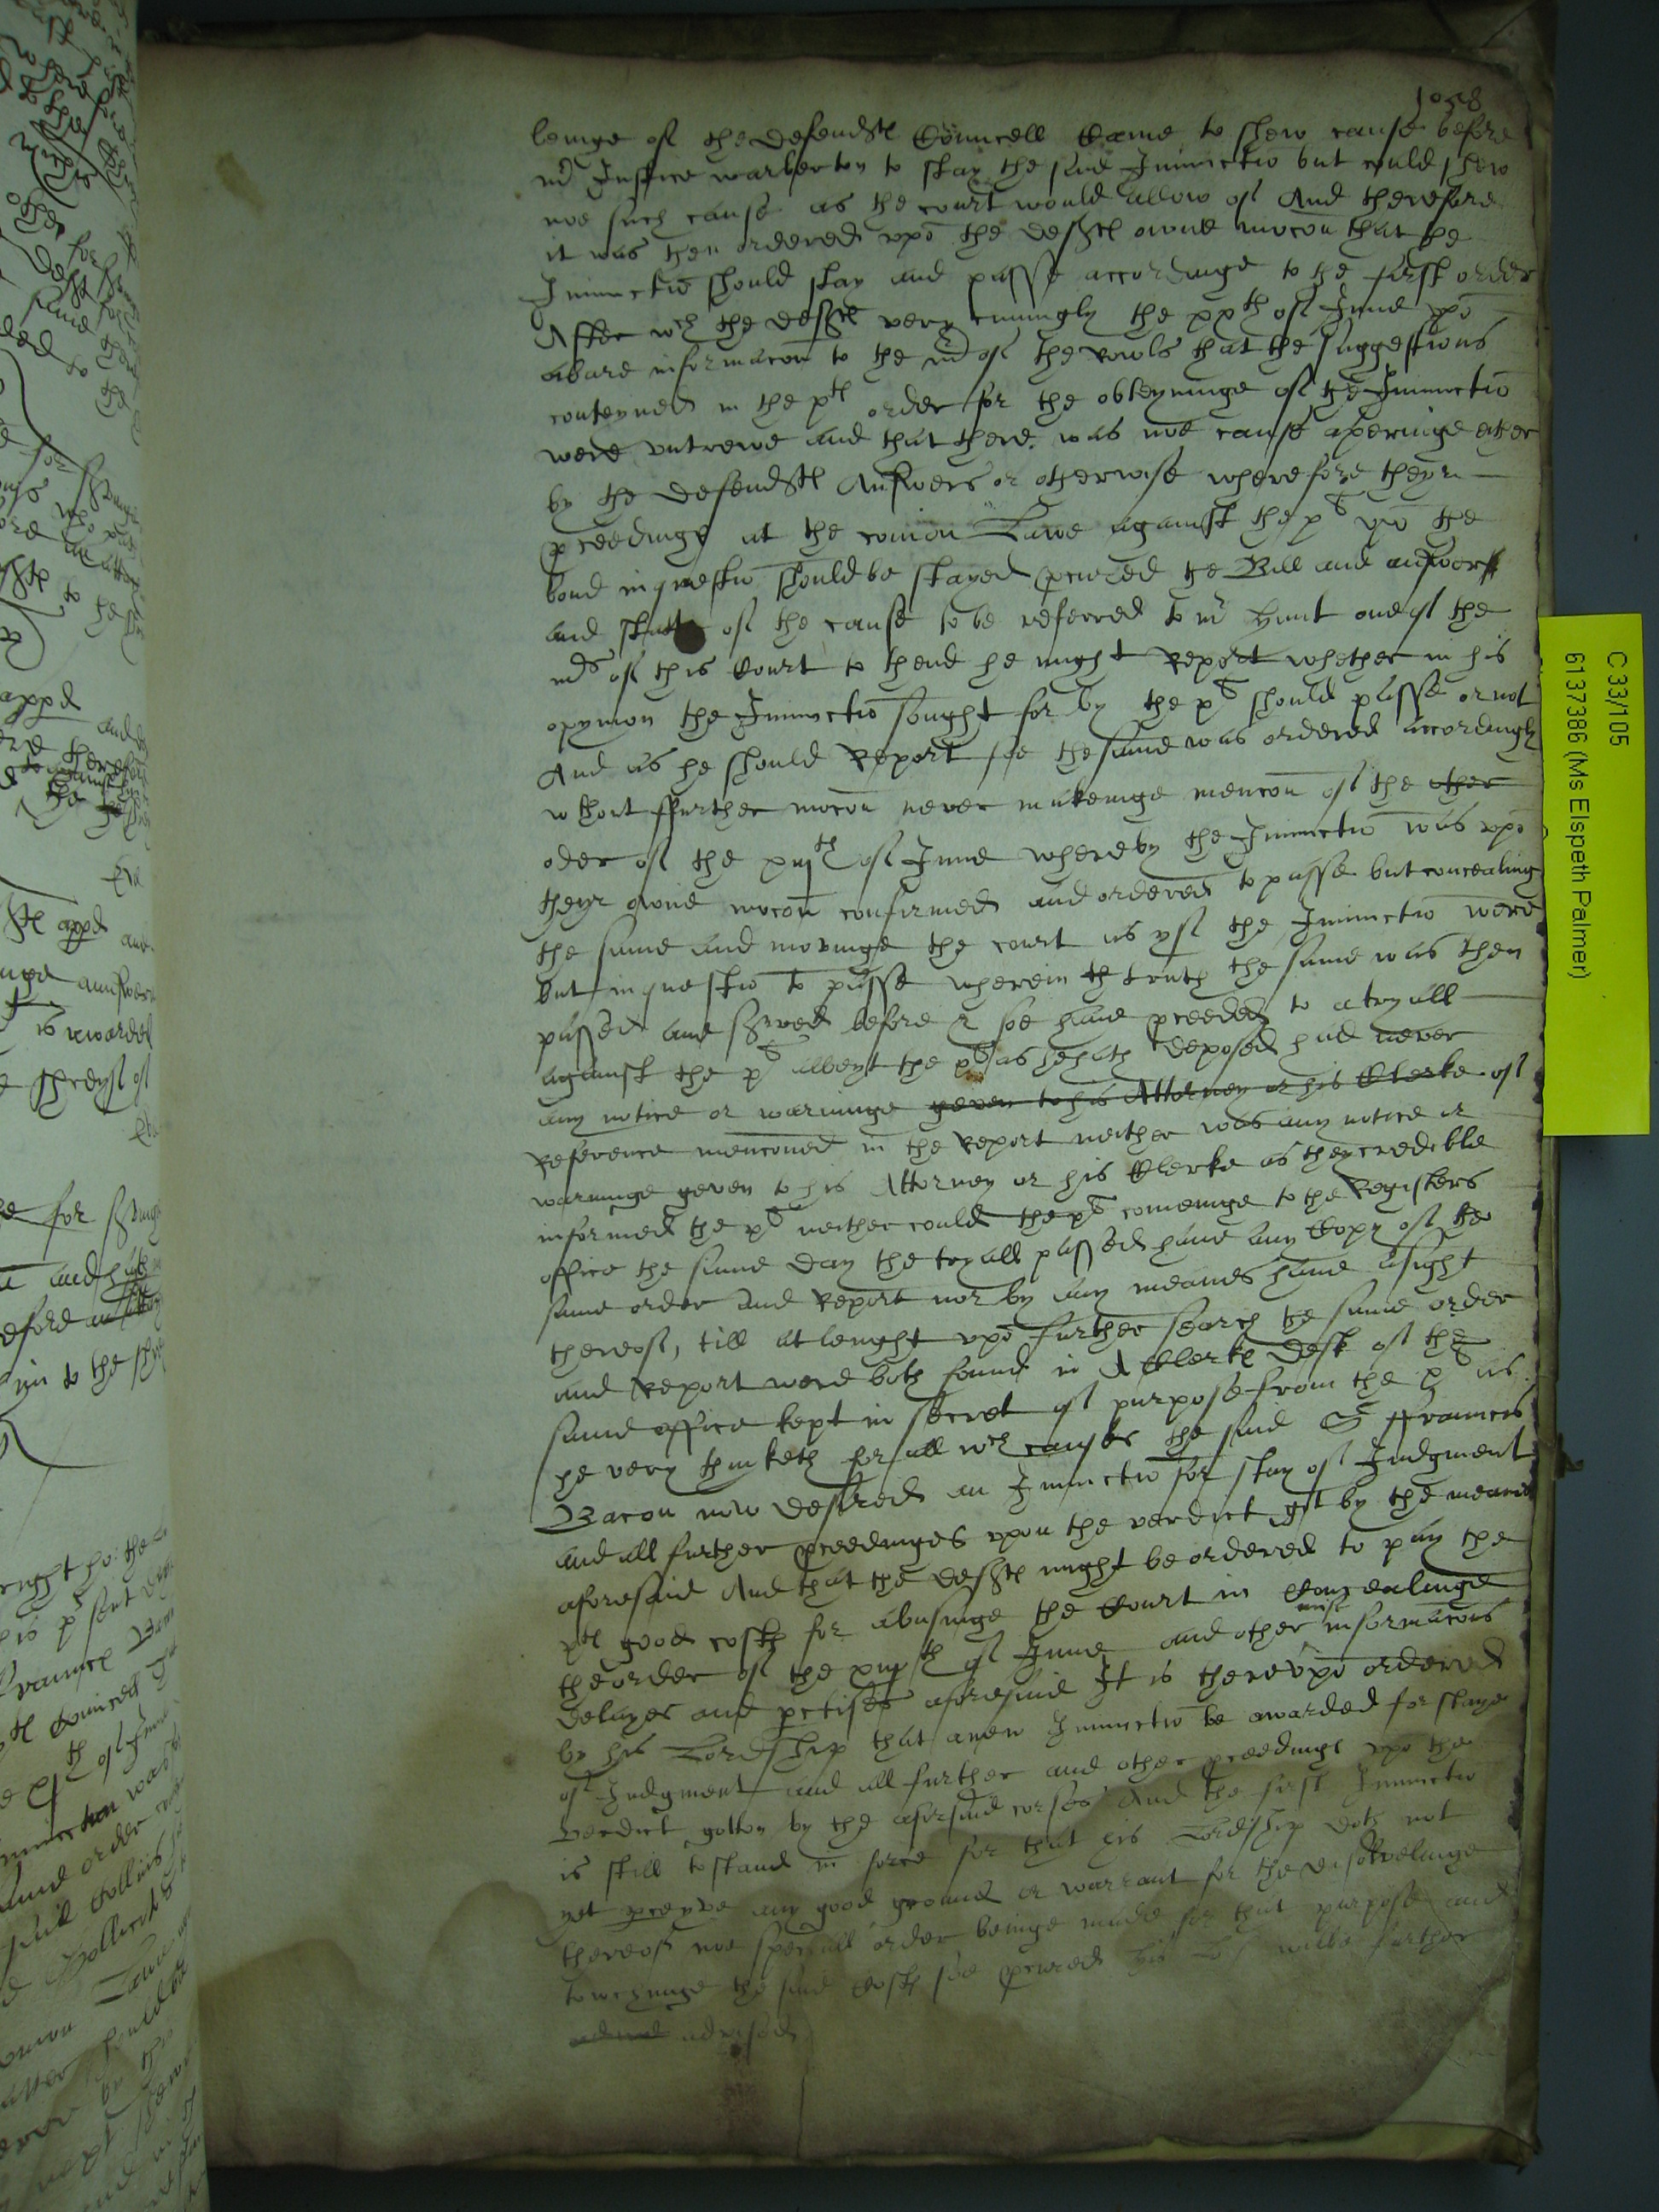 1058
beinge of the Defendtes Councell Came to shew cause before
mr Justice warberton to stay the said Iniunctio but could shew
noe such cause as the court would allow of And therefore
it was then ordered vpo the deftes owne mocon that the
Iniunctio should stay and passe accordinge to the first order
After wch the deftes very cuningly the xxth of June vpo
abare informacon to the mr of the Rowls that the suggestions
conteyned in the ptes order for the obteyninge of the Iniunctio
were vntrewe and that there was noe cause aperinge ether
by the defendtes Answers or otherwise wherefore theyr
pceedinges at the comon Lawe against the pt vpo the
bond in questio should be stayed pcured the Bill and answers
and state of the cause to be referred to mr Hunt one of the
mrs of this Court to thend he might Report whether in his
opynion the Iniunctio sought for by the pt should passe or not
And as he should Report soe the same was ordered accordingly
wthout ffurther mocon never makeinge mencon of the other
oder of the xiijth of June whereby the Iniunctio was vpo
theyr owne mocon confirmed and ordered to passe but concealing
the same and movinge the court as yf the Iniunctio were
but in questio to passe wherein th truth the same was then
passed and served before & soe have pceeded to a tryall
against the pt albeyt the pt as he hath deposed had never
any notice or warninge geven to his Attorney or his Clerke of
Reference mencioned in the Report neither was any notice or
warninge geven to his Attorney or his Clerke as they credible
informed the pt neither could the pt comeinge to the Registers
office the same day the tryall passed have any Copy of the
same order and Report nor by any meanes have a sight
thereof, till at lenght vpo further search the same order
and Report were both found in A Clerkes Desk of the
same office kept in secret of purpose from the pt as
he very thinketh for all wch causes the said Sr ffrauncis
Bacon now desired an Iniunctio for stay of Judgment
and all further pceedinges vpon the verdict got by the meanes
aforesaid And that the deftes might be ordered to pay the
ptes good costes for abusinge the Court in Concealinge
the order of the xiijth of June and other misinformacons
delayes and pctises aforesaid It is therevpo ordered
by his Lordship that a new Iniunctio be awarded for staye
of Judgment and all further and other pceedinges vpo the
verdict gotten by the aforsaid corses And the first Iniunctio
is still to stand in force for that his Lordship doth not
yet pceyve any good ground or warrant for the disolvelinge
thereof noe speciall order beinge made for that purpose and
towchinge the said Costes soe pcured his Lo: wilbe further
advised
C 33/105
6137386 (Ms Elspeth Palmer)